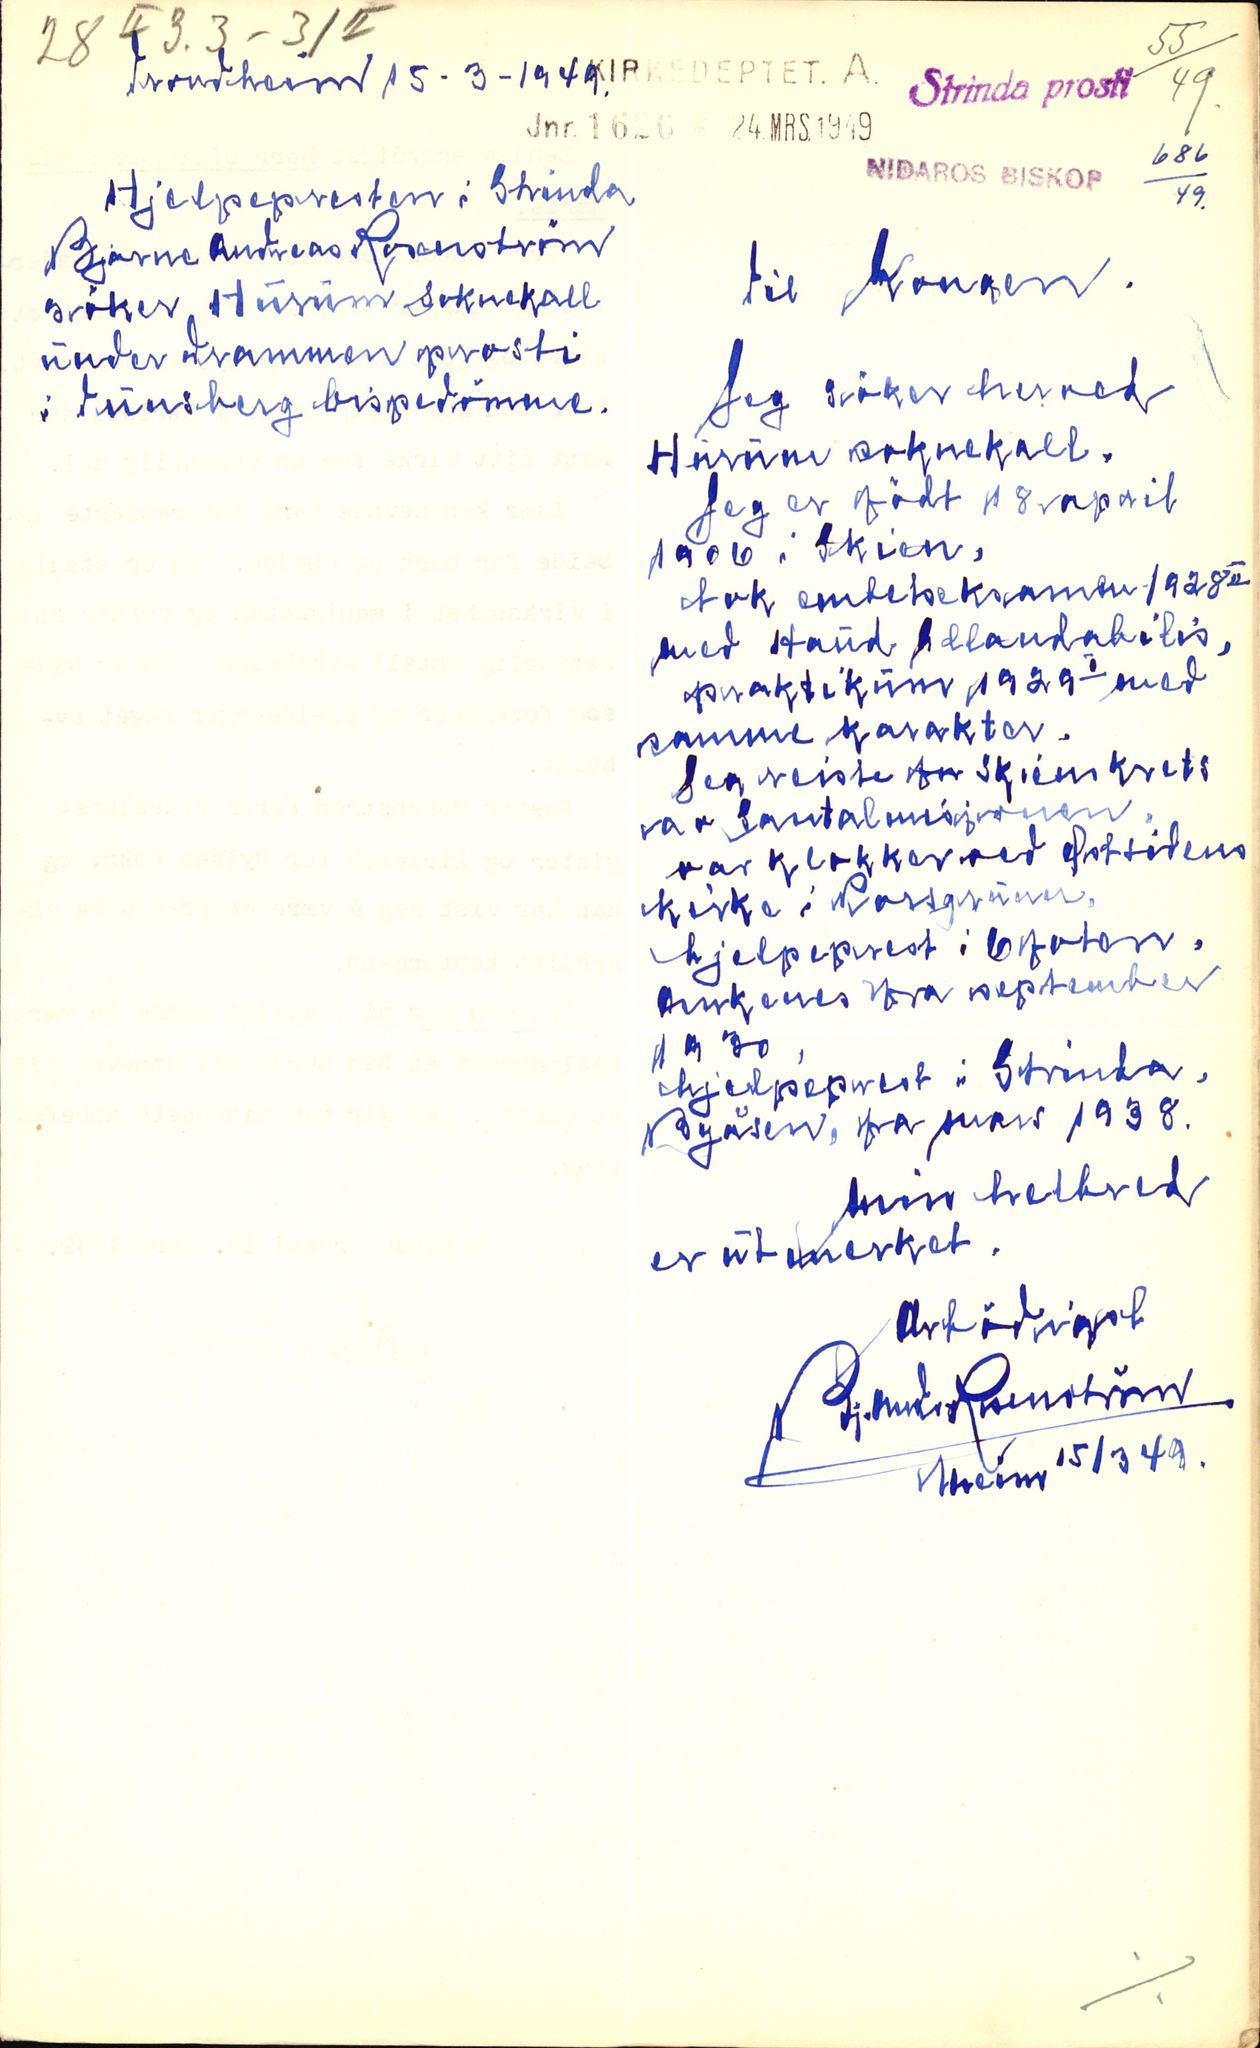 28 II 3.3 - 3/II
Trondheim 15-3-1949.
KIRKEDEPTET. A.
Jnr. 1626 * 24.MRS.1949
Strinda prosti
55/49.
NIDAROS BISKOP
686/49.
Hjelpepresten i Strinda
Bjarne Andreas Rosenström
söker Hurum soknekall
under Drammen prosti
i Tunsberg bispedömme.
Til Kongen.
Jeg söker herved
Hurum soknekall.
Jeg er födt 18. april
1906 i Skien,
tok embetseksamen 1928 II
med Haud illaudabilis,
praktikum 1929 I med
samme karakter.
Jeg reiste for Skiens krets
av Santalmisjonen,
var klokker ved Østsidens
kirke i Porsgrunn,
hjelpeprest i Ofoten,
Ankenes fra september
1930,
hjelpeprest i Strinda,
Byåsen, fra mars 1938.
Min helbred
er utmerket.
Ärbödigst
Bj. Andr. Rosenström
Theim 15/3 49.